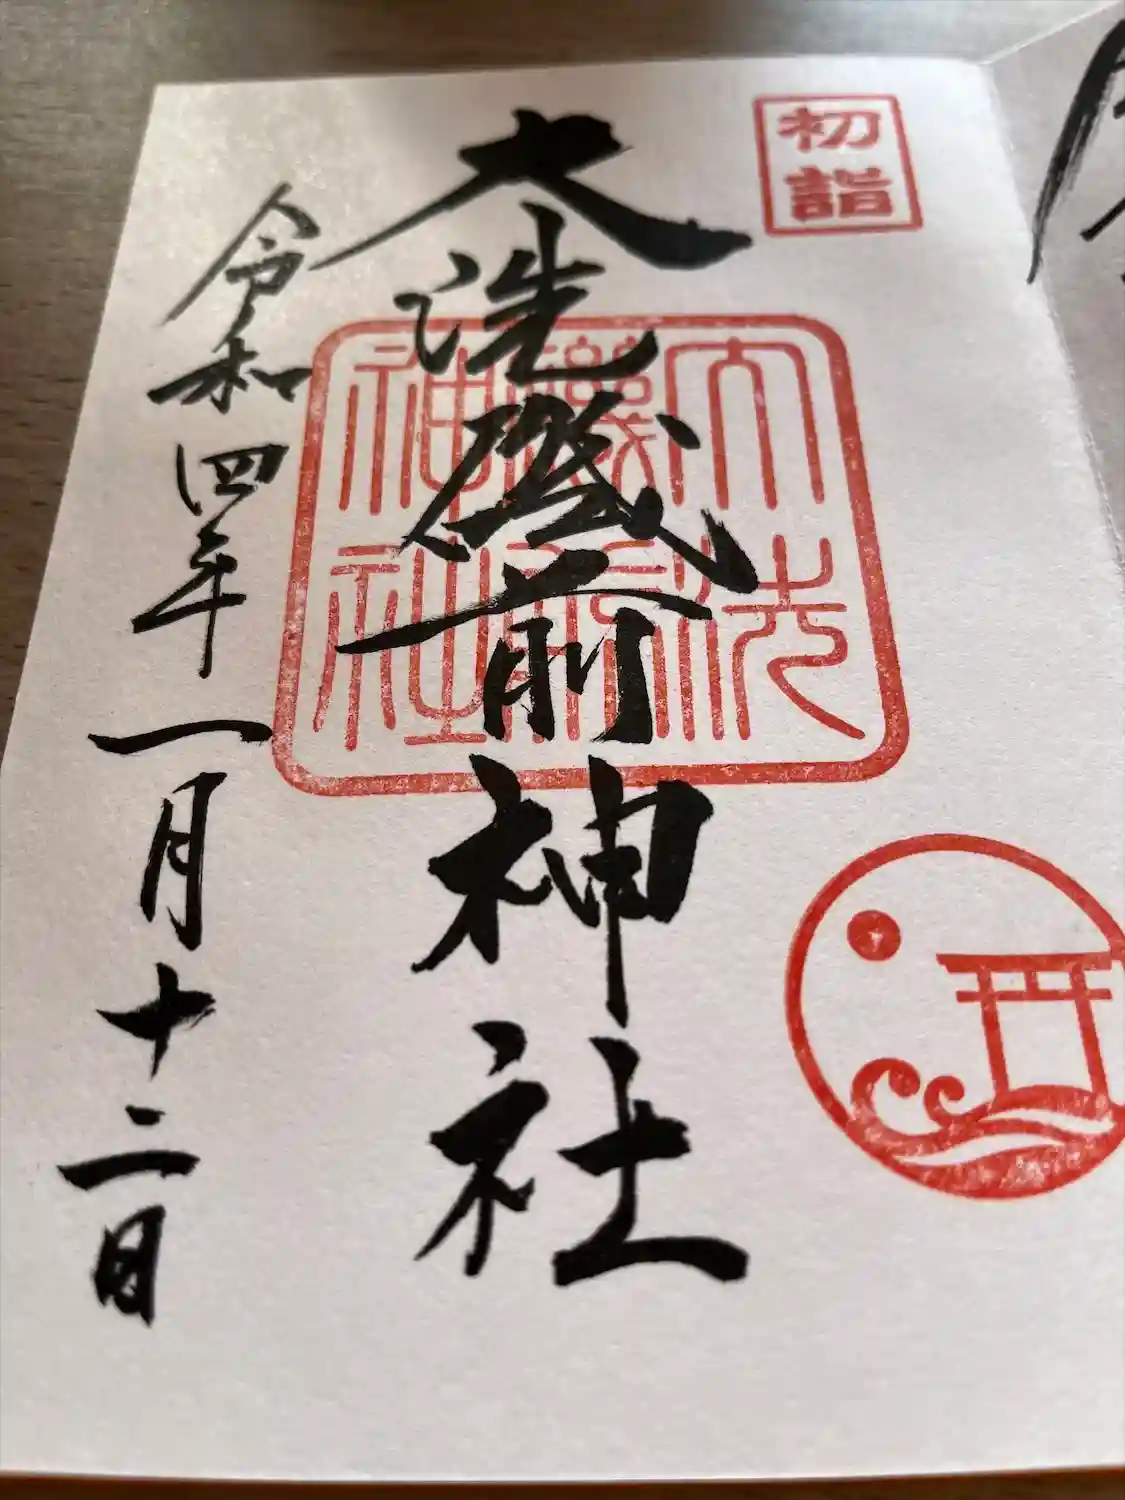 初詣
大洗磯前神社
大洗
磯前
神社
令和四年一月十二日